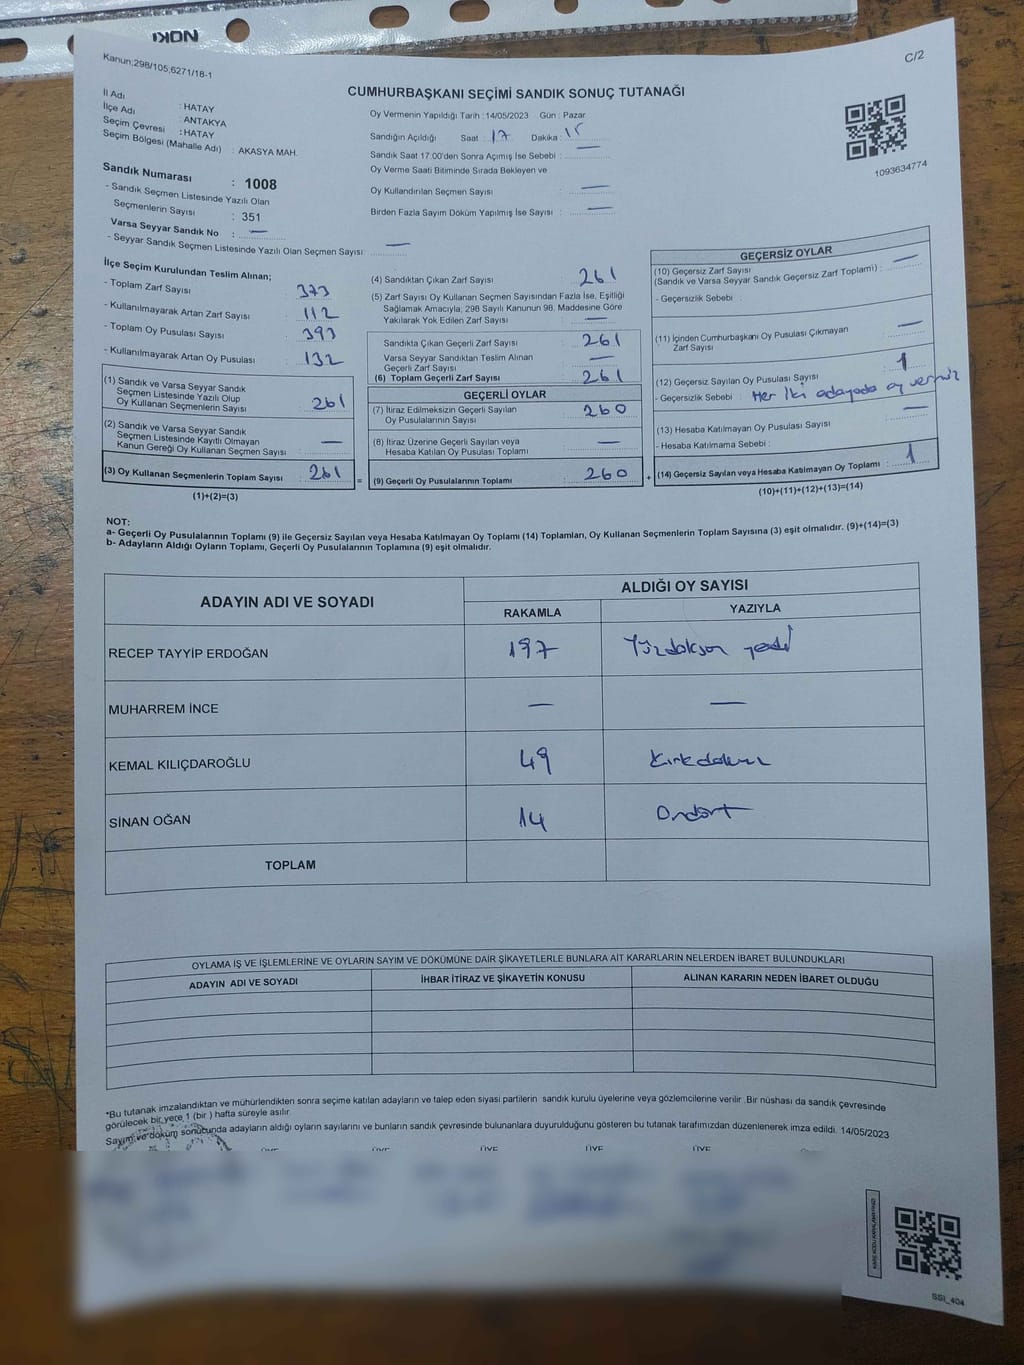 NOKI
Kanun;298/105;6271/18-1
C/2
CUMHURBAŞKANI SEÇİMİ SANDIK SONUÇ TUTANAĞI
İl Adı : HATAY
İlçe Adı : ANTAKYA
Seçim Çevresi : HATAY
Seçim Bölgesi (Mahalle Adı) : AKASYA MAH.
Sandık Numarası : 1008
- Sandık Seçmen Listesinde Yazılı Olan
Seçmenlerin Sayısı : 351
Varsa Seyyar Sandık No : —
- Seyyar Sandık Seçmen Listesinde Yazılı Olan Seçmen Sayısı : —
Oy Vermenin Yapıldığı Tarih : 14/05/2023 Gün : Pazar
Sandığın Açıldığı Saat : 17 Dakika : 15
Sandık Saat 17:00'den Sonra Açımış İse Sebebi : —
Oy Verme Saati Bitiminde Sırada Bekleyen ve
Oy Kullandırılan Seçmen Sayısı : —
Birden Fazla Sayım Döküm Yapılmış İse Sayısı : —
1093634774
İlçe Seçim Kurulundan Teslim Alınan;
- Toplam Zarf Sayısı : 373
- Kullanılmayarak Artan Zarf Sayısı : 112
- Toplam Oy Pusulası Sayısı : 393
- Kullanılmayarak Artan Oy Pusulası : 132
(1) Sandık ve Varsa Seyyar Sandık
Seçmen Listesinde Yazılı Olup
Oy Kullanan Seçmenlerin Sayısı : 261
(2) Sandık ve Varsa Seyyar Sandık
Seçmen Listesinde Kayıtlı Olmayan
Kanun Gereği Oy Kullanan Seçmen Sayısı : —
(3) Oy Kullanan Seçmenlerin Toplam Sayısı : 261
(1)+(2)=(3)
(4) Sandıktan Çıkan Zarf Sayısı : 261
(5) Zarf Sayısı Oy Kullanan Seçmen Sayısından Fazla İse, Eşitliği
Sağlamak Amacıyla; 298 Sayılı Kanunun 98. Maddesine Göre
Yakılarak Yok Edilen Zarf Sayısı : —
Sandıkta Çıkan Geçerli Zarf Sayısı : 261
Varsa Seyyar Sandıktan Teslim Alınan
Geçerli Zarf Sayısı : —
(6) Toplam Geçerli Zarf Sayısı : 261
GEÇERLİ OYLAR
(7) İtiraz Edilmeksizin Geçerli Sayılan
Oy Pusulasının Sayısı : 260
(8) İtiraz Üzerine Geçerli Sayılan veya
Hesaba Katılan Oy Pusulası Toplamı : —
= (9) Geçerli Oy Pusulalarının Toplamı : 260 +
GEÇERSİZ OYLAR
(10) Geçersiz Zarf Sayısı
(Sandık ve Varsa Seyyar Sandık Geçersiz Zarf Toplamı) : —
- Geçersizlik Sebebi :
(11) İçinden Cumhurbaşkanı Oy Pusulası Çıkmayan
Zarf Sayısı : —
(12) Geçersiz Sayılan Oy Pusulası Sayısı : 1
- Geçersizlik Sebebi : Her iki adayada oy vermiş
(13) Hesaba Katılmayan Oy Pusulası Sayısı : —
- Hesaba Katılmama Sebebi :
(14) Geçersiz Sayılan veya Hesaba Katılmayan Oy Toplamı : 1
(10)+(11)+(12)+(13)=(14)
NOT:
a- Geçerli Oy Pusulalarının Toplamı (9) ile Geçersiz Sayılan veya Hesaba Katılmayan Oy Toplamı (14) Toplamları, Oy Kullanan Seçmenlerin Toplam Sayısına (3) eşit olmalıdır. (9)+(14)=(3)
b- Adayların Aldığı Oyların Toplamı, Geçerli Oy Pusulalarının Toplamına (9) eşit olmalıdır.
ADAYIN ADI VE SOYADI
ALDIĞI OY SAYISI
RAKAMLA YAZIYLA
RECEP TAYYİP ERDOĞAN 197 Yüzdoksan yedi
MUHARREM İNCE — —
KEMAL KILIÇDAROĞLU 49 Kırkdokuz
SİNAN OĞAN 14 Ondört
TOPLAM
OYLAMA İŞ VE İŞLEMLERİNE VE OYLARIN SAYIM VE DÖKÜMÜNE DAİR ŞİKAYETLERLE BUNLARA AİT KARARLARIN NELERDEN İBARET BULUNDUKLARI
ADAYIN ADI VE SOYADI İHBAR İTİRAZ VE ŞİKAYETİN KONUSU ALINAN KARARIN NEDEN İBARET OLDUĞU
*Bu tutanak imzalandıktan ve mühürlendikten sonra seçime katılan adayların ve talep eden siyasi partilerin sandık kurulu üyelerine veya gözlemcilerine verilir .Bir nüshası da sandık çevresinde
görülecek bir yere 1 (bir ) hafta süreyle asılır.
Sayım ve döküm sonucunda adayların aldığı oyların sayılarını ve bunların sandık çevresinde bulunanlara duyurulduğunu gösteren bu tutanak tarafımızdan düzenlenerek imza edildi. 14/05/2023
ÜYE ÜYE ÜYE ÜYE ÜYE
SSİ_404